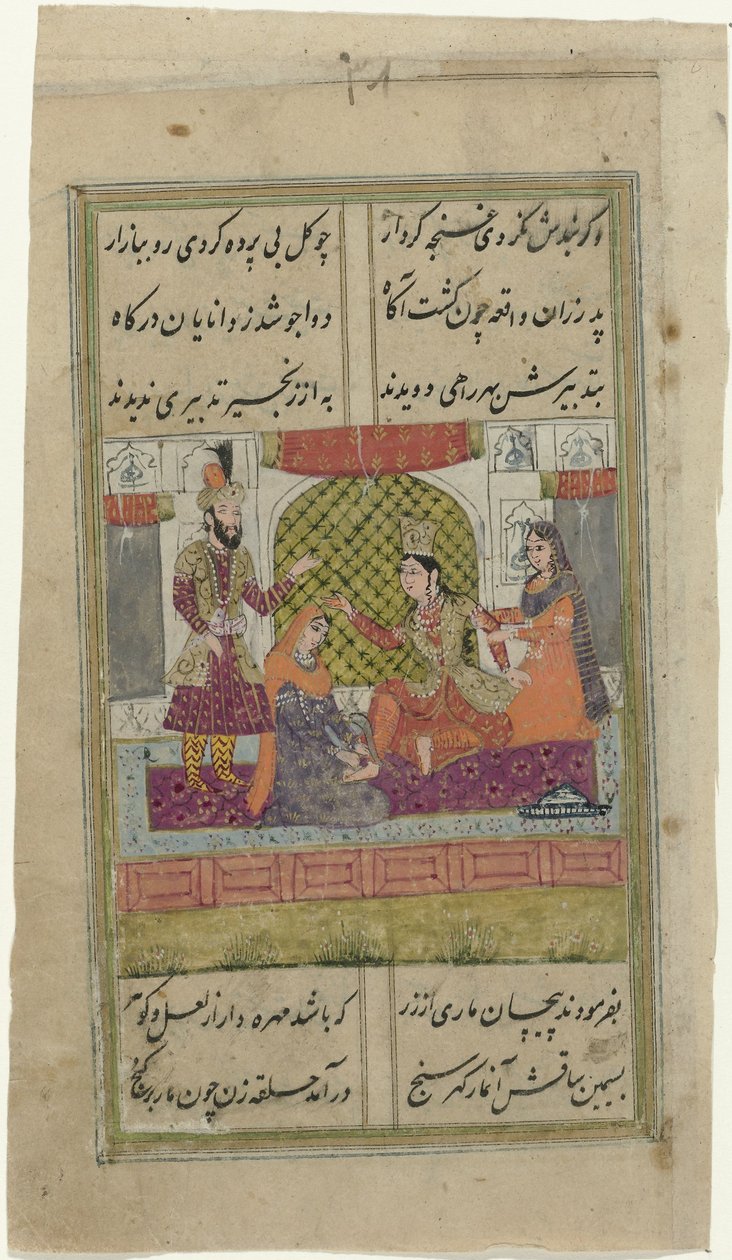 وگر بندش نکردی غنچه کردار چو گل بی پرده کردی رو ببازار
پدر زان واقعه چون گشت آگاه دواجو شد ز دانایان درگاه
بتدبیرش بهر راهی دویدند به از زنجیر تدبیری ندیدند
بفرمودند پیچان ماری از زر که باشد مهره دار از لعل و گوهر
بسیمین ساقش آنمار گهر سنج درآمد حلقه زن چون مار بر گنج